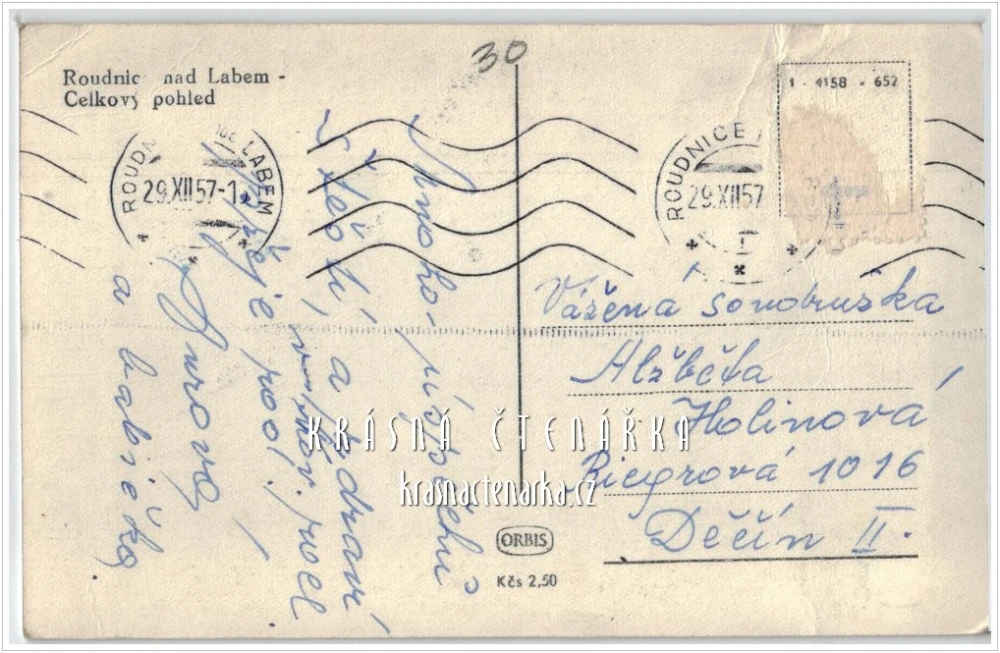 30
Roudnic nad Labem -
Celkový pohled
1 - 4158 - 652
ROUDN LABEM
29.XII57-1
ROUDNICE
29.XII57
Mnoho úspěchů
štěstí, a zdraví
přeje rod.
a babička
Vážená soudružka
Alžběta
Holinová
Riegrová 1016
Děčín II.
KRÁSNÁ ČTENÁŘKA
krasnactenarka.cz
ORBIS
Kčs 2,50